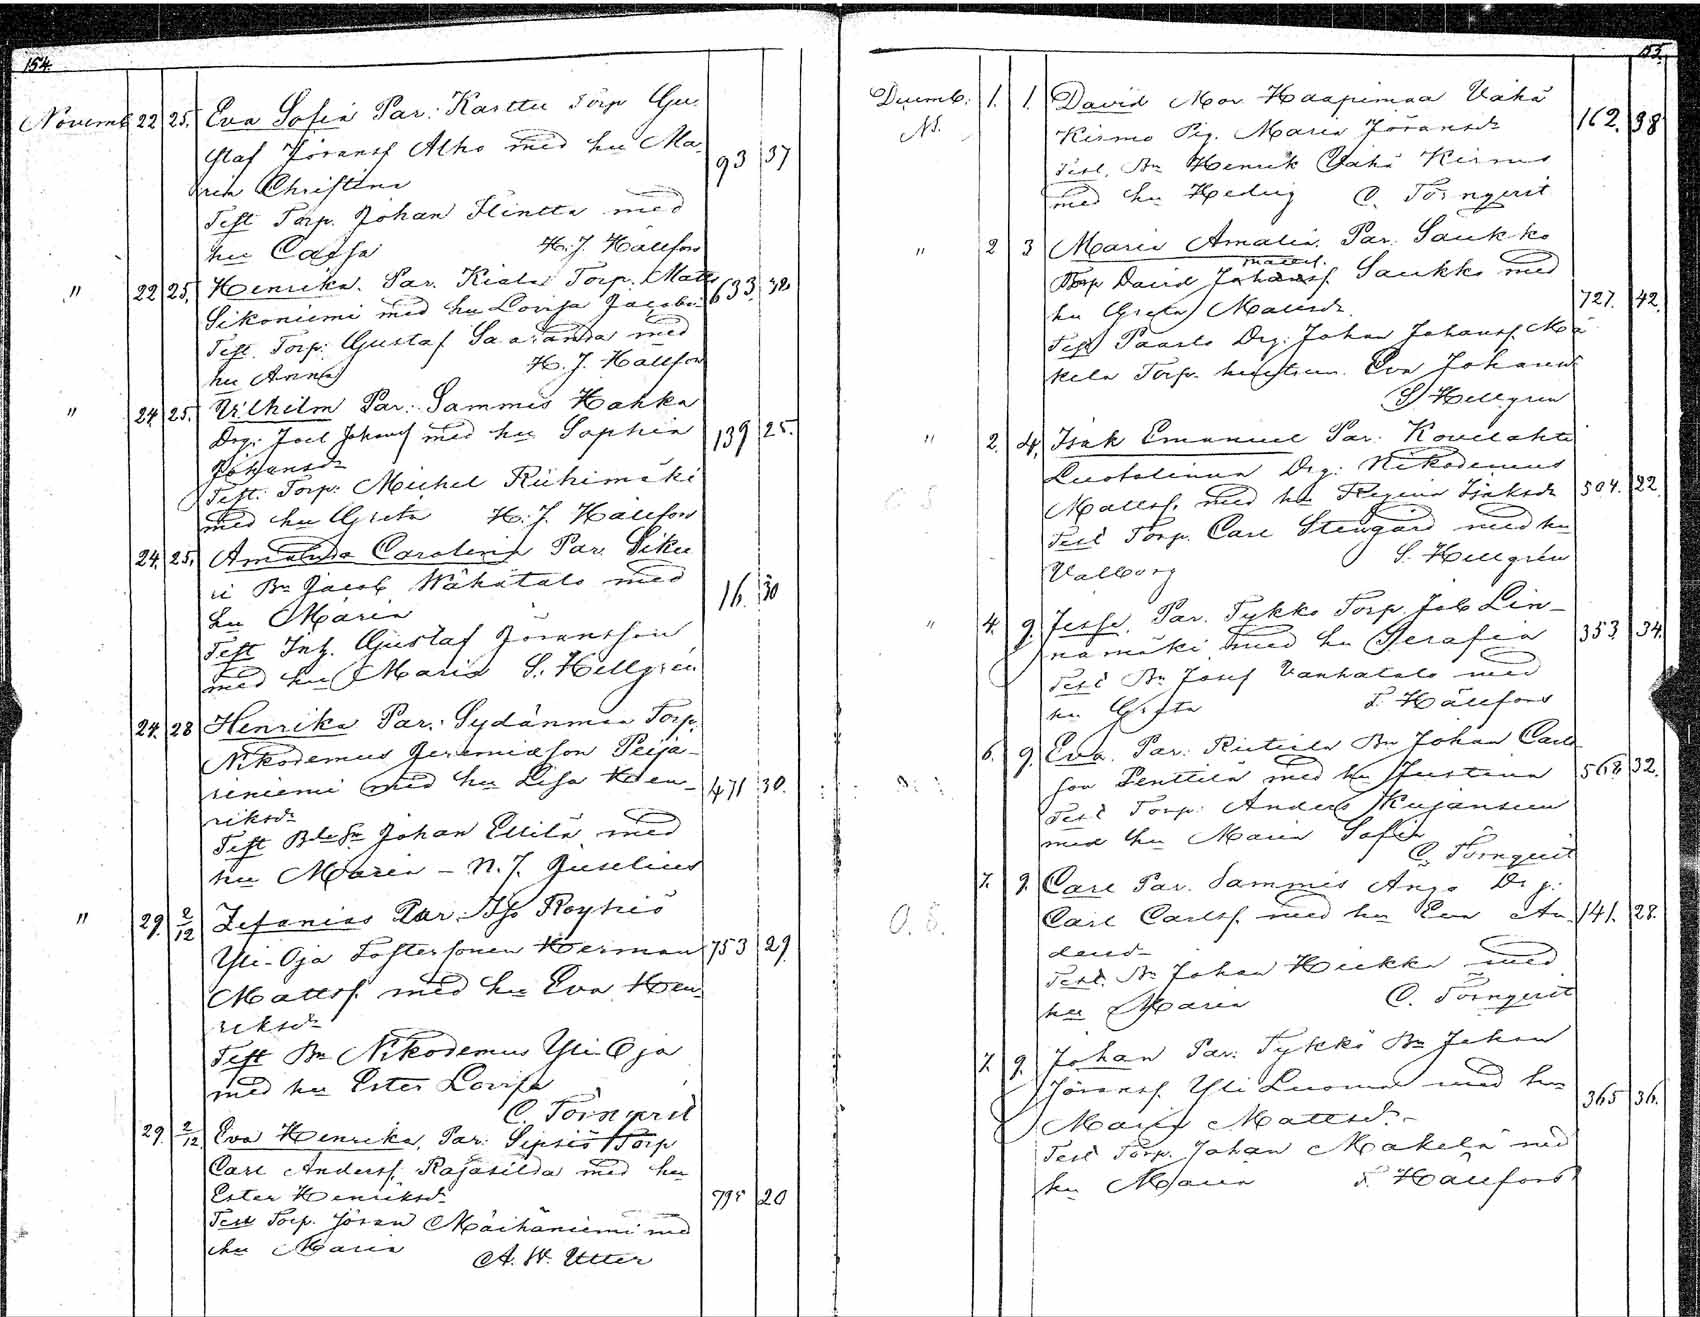 154.
Novemb. 22 25. Eva Sofia Par: Karttu Torp Gu-
staf Jöransf Alho med hu Ma- 93 37
ria Christina
Test Torp. Johan Flintta med
hu Cajsa H. J. Hällfors
" 22 25. Henrika. Par. Kiala Torp. Matts 633 32
Sikoniemi med hu Lovisa Jacobsd
Test. Torp: Gustaf Saaranda med
hu Anna H. J. Hällfors
" 24 25. Vilhelm Par: Sammis Hahka
Drg: Joel Johansf med hu Sophia 139 25.
Johansdr
Test. Torp: Michel Riihimäki
med hu Greta H. J. Hällfors
24. 25. Amanda Carolina Par. Siku
ri Bn Jacob Wähätalo med 16. 30
hu Maria
Test Inh. Gustaf Jöransson
med hu Maria S. Hellgrén
24. 28 Henrika Par: Sydänmaa Torp.
Nikodemus Jeremiasson Peija-
riniemi med hu Lisa Hen- 471 30.
riksdr
Test Johan Ellilä med
hu Maria – N. J. Juselius
" 29. 2/12 Zefanias Par: Iso Röyhiö
Yli-Oja Fostersonen Herman 753 29
Mattsf. med hu Eva Hen-
riksdr
Test Bn Nikodemus Yli-Oja
med hu Ester Lovisa
C. Törnqvist
29. 2/12 Eva Henrika. Par: Sipsiö Torp
Carl Andersf. Rajasilda med hu
Ester Henriksdr 795 20
Test Torp. Jöran Mäihäniemi med
hu Maria A. W. Utter
155.
Decemb. 1. 1. David Mor Haapimaa Vähä
N.S. Kirmo Pig. Maria Jöransdr 162. 38
Test. Bn Henrik Vähä Kirmo
med hu Hedvig C. Törnqvist
" 2 3 Maria Amalia. Par. Saukko
Mattsf.
Torp David Johansf. Saukko med
hu Greta Mattsdr. 727. 42.
Test Paasto Drg: Johan Johansf. Mä
kelä Torp. hustrun. Eva Johansd.
S. Hellgrén
" 2. 4. Isak Emanuel Par: Kovelahti
Luotolinna Drg: Nikodemus
Mattsf. med hu Regina Isaksdr 504. 22.
O. S. Test Torp. Carl Stengård med hu
Valborg S. Hellgrén
" 4. 9. Jesse. Par. Tykko Torp. Job Lin-
namäki med hu Serafia 353. 34.
Test Bn Josef Vanhatalo med
hu Greta F. Hällfors
6. 9. Eva. Par: Rutiila Bn Johan Carls-
son Penttilä med hu Justina 568. 32.
Test Torp: Anders Kujansuu
med hu Maria Sofia
C. Törnqvist
7. 9. Carl Par. Sammis Ango Drg:
O. S. Carl Carlsf. med hu Eva An- 141. 28.
dersd-
Test. Bn Johan Hiekka med
hu Maria C. Törnqvist
7. 9. Johan Par: Tykkö Bn Johan
Jöransf. Yli Luoma med hu 365 36.
Maria Mattsdr.-
Test Torp. Johan Mäkelä med
hu Maria F. Hällfors